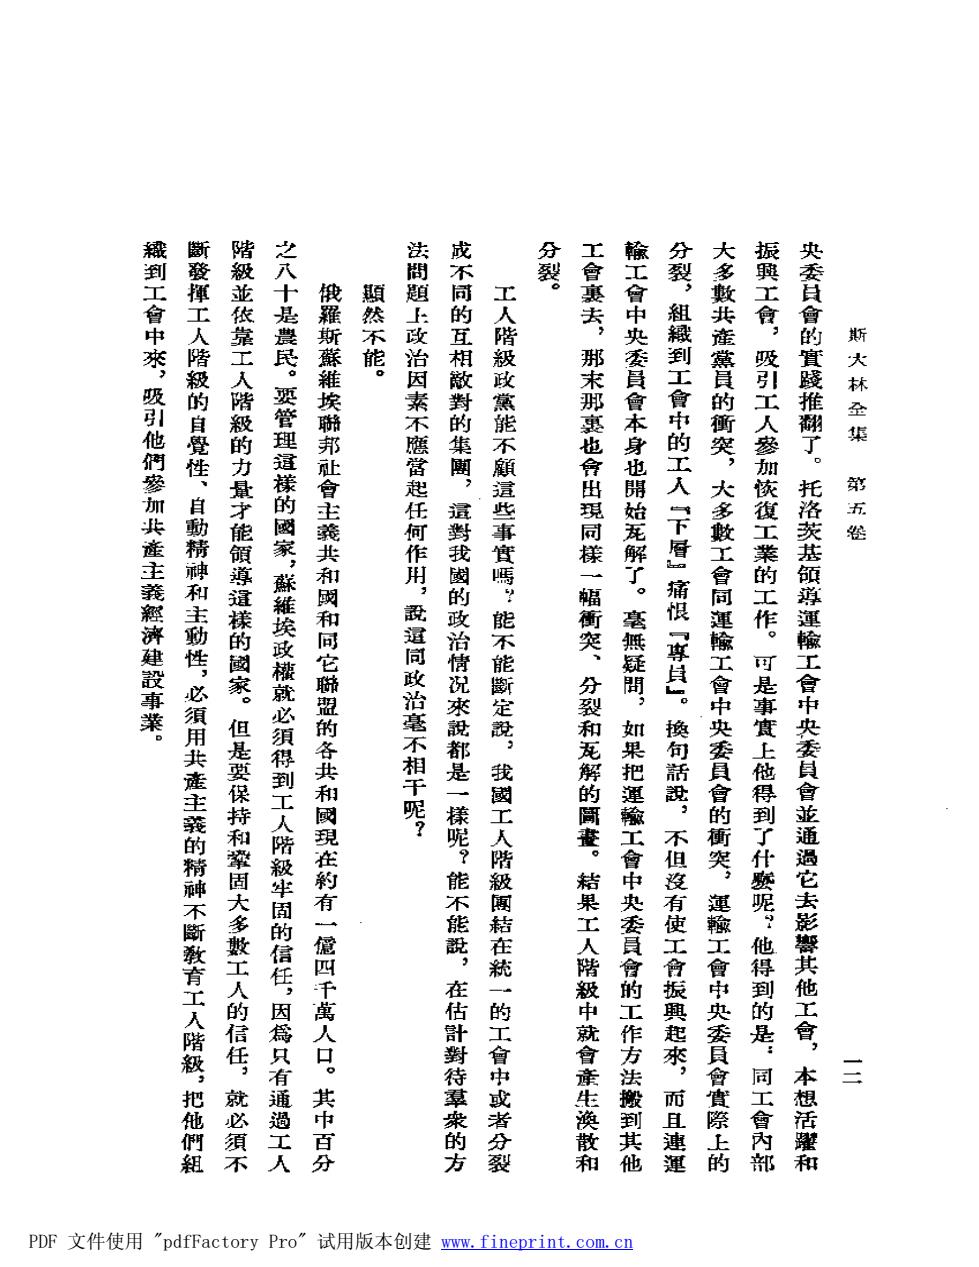 斯大林全集　第五卷
一二
央委員會的實踐推翻了。托洛茨基領導運輸工會中央委員會並通過它去影響其他工會，本想活躍和
振興工會，吸引工人參加恢復工業的工作。可是事實上他得到了什麼呢？他得到的是：同工會內部
大多數共產黨員的衝突，大多數工會同運輸工會中央委員會的衝突，運輸工會中央委員會實際上的
分裂，組織到工會中的工人『下層』痛恨『專員』。換句話說，不但沒有使工會振興起來，而且連運
輸工會中央委員會本身也開始瓦解了。毫無疑問，如果把運輸工會中央委員會的工作方法搬到其他
工會裏去，那末那裏也會出現同樣一幅衝突、分裂和瓦解的圖畫。結果工人階級中就會產生渙散和
分裂。
工人階級政黨能不顧這些事實嗎？能不能斷定說，我國工人階級團結在統一的工會中或者分裂
成不同的互相敵對的集團，這對我國的政治情况來說都是一樣呢？能不能說，在估計對待羣衆的方
法問題上政治因素不應當起任何作用，說這同政治毫不相干呢？
顯然不能。
俄羅斯蘇維埃聯邦社會主義共和國和同它聯盟的各共和國現在約有一億四千萬人口。其中百分
之八十是農民。要管理這樣的國家，蘇維埃政權就必須得到工人階級牢固的信任，因爲只有通過工人
階級並依靠工人階級的力量才能領導這樣的國家。但是要保持和鞏固大多數工人的信任，就必須不
斷發揮工人階級的自覺性、自動精神和主動性，必須用共產主義的精神不斷敎育工人階級，把他們組
織到工會中來，吸引他們參加共產主義經濟建設事業。
PDF 文件使用 "pdfFactory Pro" 试用版本创建 www.fineprint.com.cn